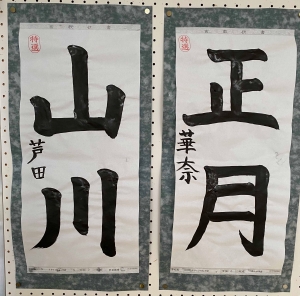 特選
正月
華奈
特選
山川
芦田